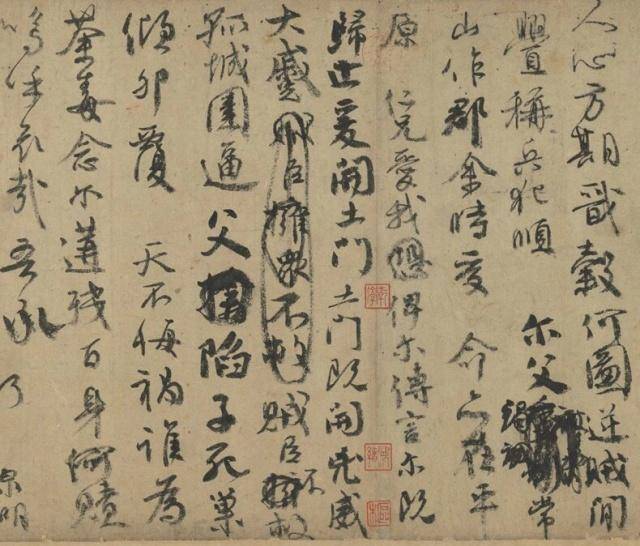 人心方期戩穀何圖逆賊間
釁稱兵犯順爾父竭誠常
山作郡余時受命亦在平
原仁兄愛我恐俾爾傳言爾既
歸止爰開土門土門既開凶威
大蹙賊臣擁眾不救賊臣不救
孤城圍逼父陷子死巢
傾卵覆天不悔禍誰為
荼毒念爾遘殘百身何贖
嗚呼哀哉吾承
乃泉明